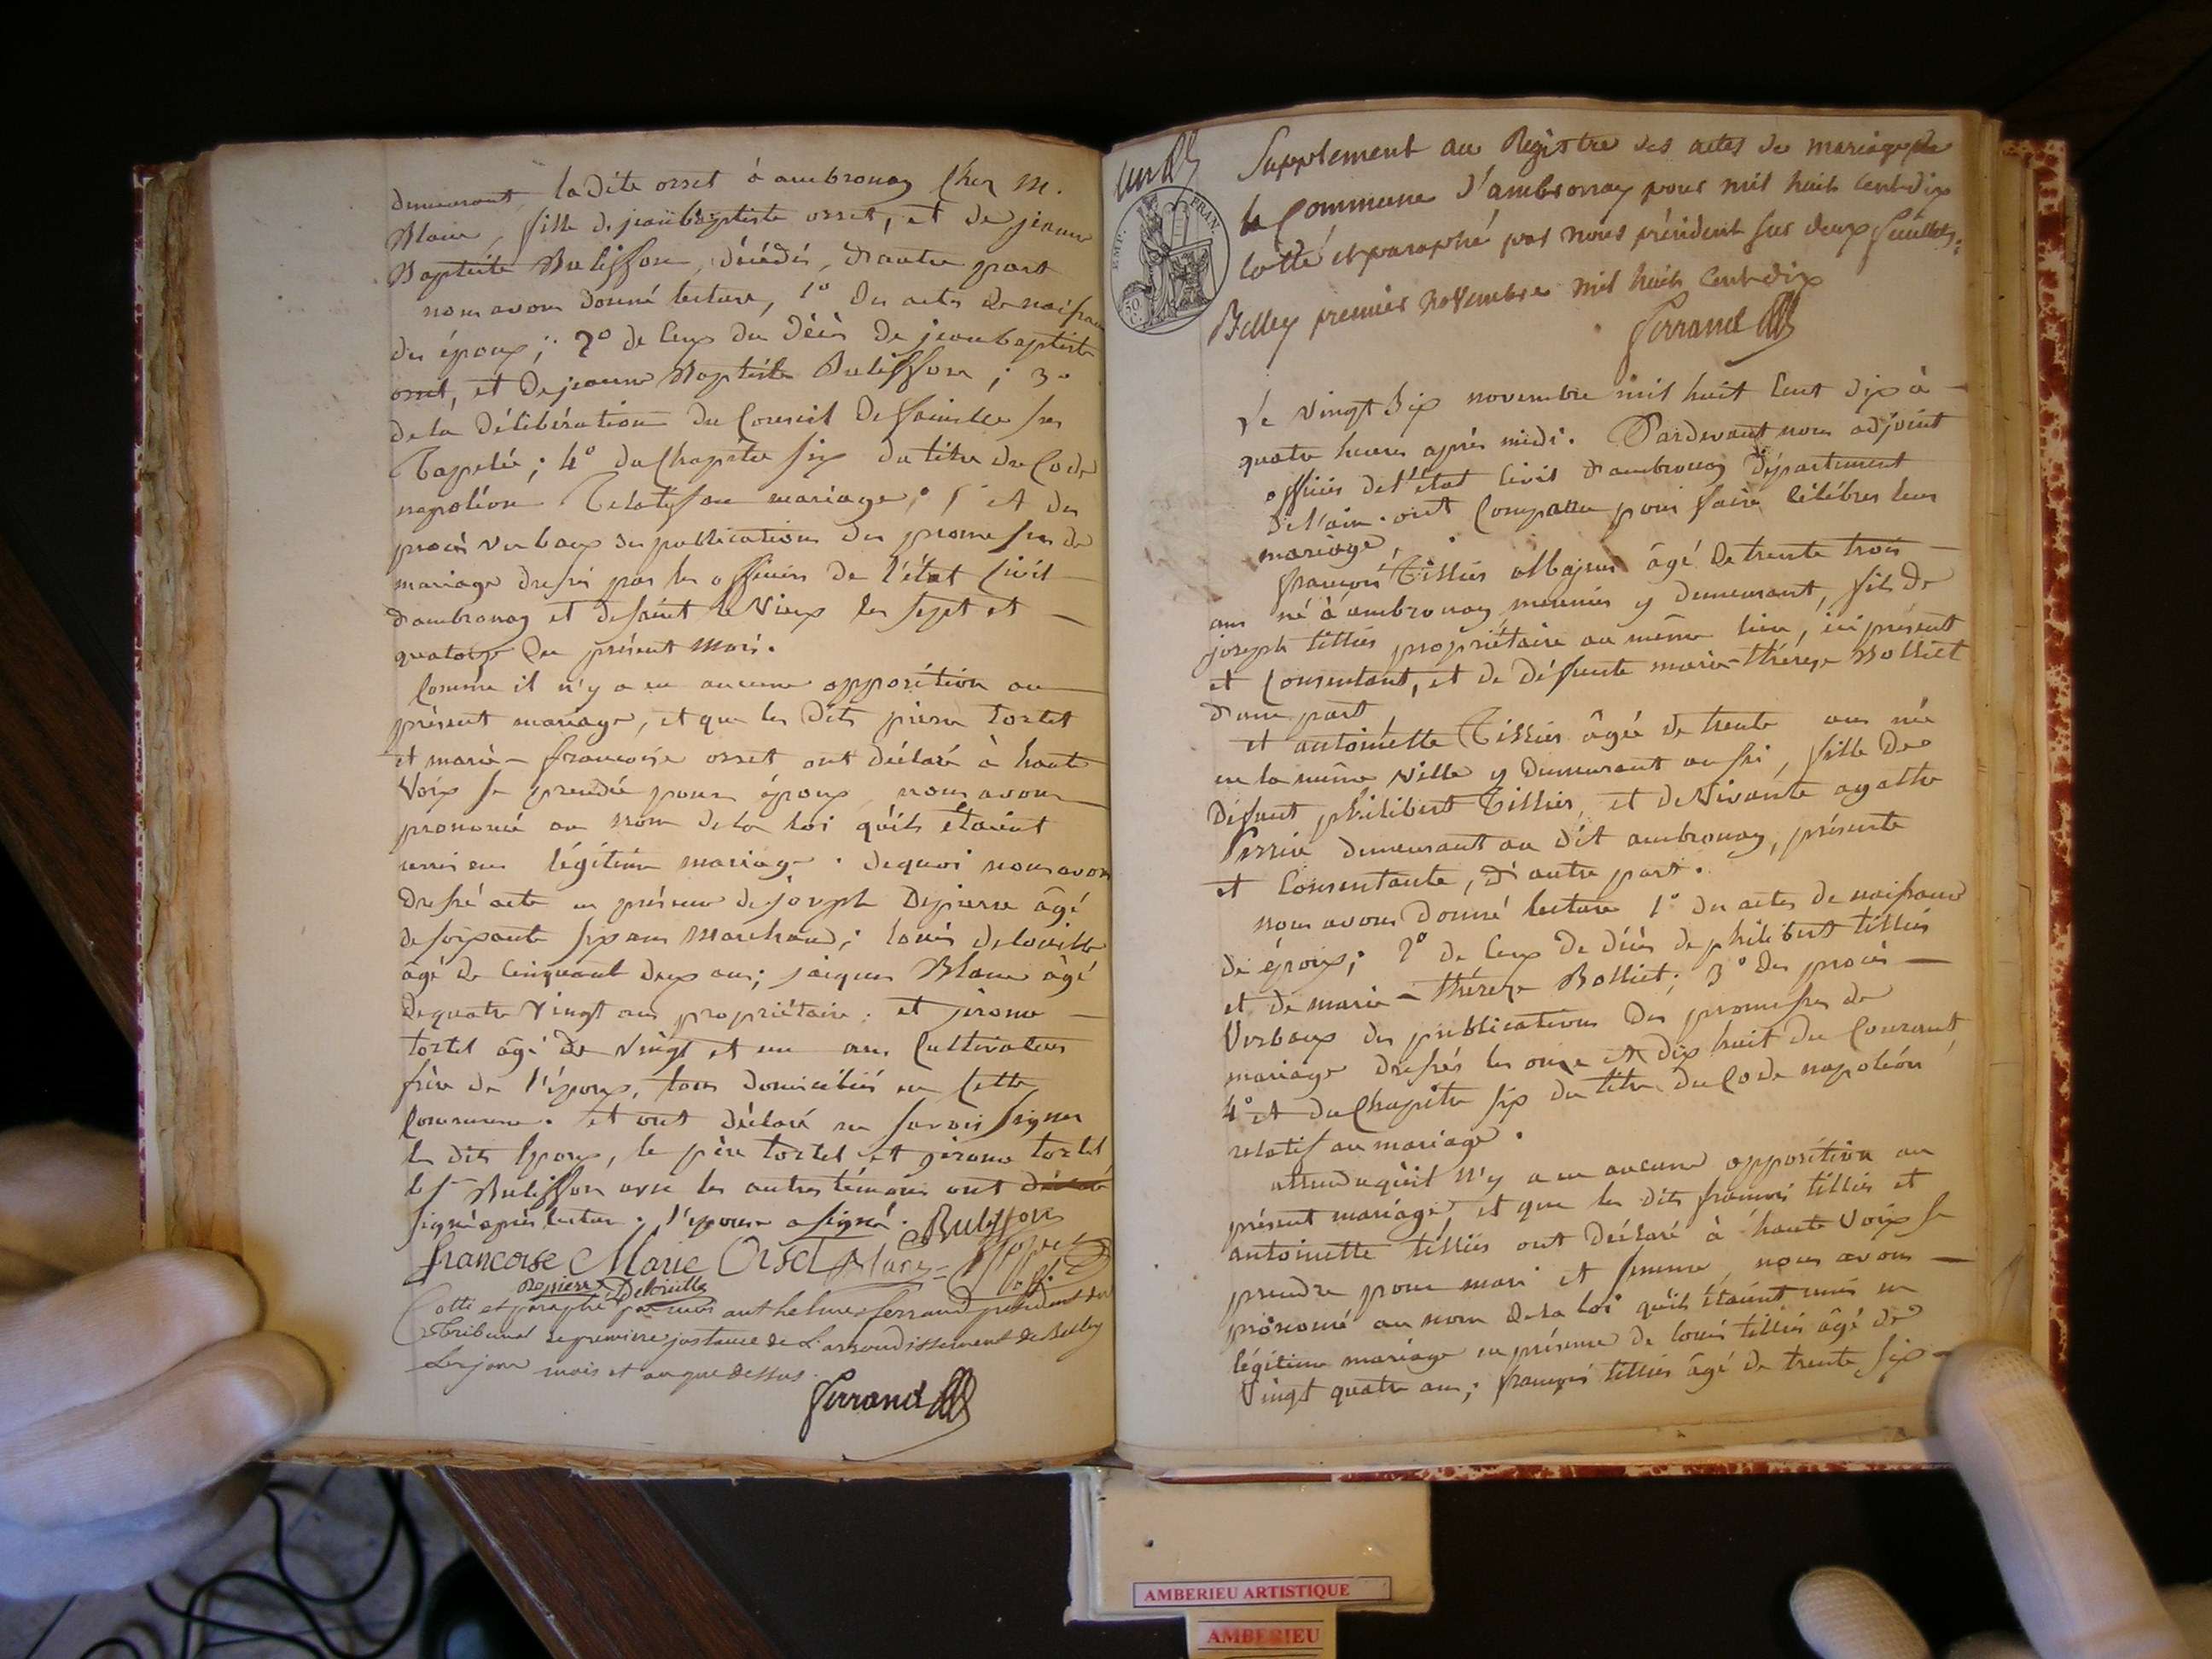 demeurant, la dite orset à ambronay chez M.
Blanc, fille de jean baptiste orset, et de jeanne
Baptiste Buliffon, décédés, d'autre part
nous avons donné lecture, 1° des actes de naissance
des époux; 2° de ceux du décès de jean baptiste
orset, et de jeanne Baptiste Buliffon; 3°
de la délibération du Conseil de famille sus
rapelée; 4° du Chapitre six du titre du Code
napoléon relatif au mariage; 5° et des
procès verbaux des publications des promesses de
mariage dressés par les officiers de l'état Civil
d'ambronay et de saint le Vieux les sept et
quatorze du présent mois.
Comme il n'y a eu aucune opposition au
présent mariage, et que les dits pierre tortet
et marie-françoise orset ont déclaré à haute
Voix se prendre pour époux nous avons
prononcé au nom de la loi qu'ils étaient
unis en légitime mariage. de quoi nous avons
dressé acte en présence de joseph Depierre âgé
de soixante six ans Marchand; louis delouille
âgé de Cinquante deux ans; jaiques Blanc âgé
de quatre Vingt ans propriétaire; et jérome
tortet âgé de Vingt et un ans Cultivateur
frère de l'époux, tous domiciliés en Cette
Commune. et ont déclaré ne savoir signer
les dits époux, le père tortet et jérome tortet
le sr Buliffon avec les autres témoins ont déclaré
signé après lecture; l'épouse a signé. Buliffon
francoise Marie Orset Blanc
Depierre Delouille
Cotté et paraphé par nous anthelme ferrand président du
Tribunal de première instance de L'arrondissement de Belley
Les jour mois et an que dessus.
Ferrand
Supplement au Registre des actes de mariage de
la Commune d'ambronay pour mil huit Cent dix
Cotté et paraphé par nous président sur deux feuillets;
Belley premier Novembre mil huit Cent dix
Ferrand
EMP. FRAN.
50 C.
le vingt six novembre mil huit Cent dix à
quatre heures après midi. Pardevant nous adjoint
officier de l'état Civil d'ambronay Département
de l'ain. ont Comparu pour faire Célébrer leur
mariage,
françois Tillier âgé de trente trois
ans né à ambronay meunier y demeurant, fils de
joseph tillier propriétaire au même lieu, ici présent
et Consentant, et de défunte marie-thérèze Bolliet
d'une part
et antoinette Tillier âgée de trente ans née
en la même Ville y demeurant aussi, fille de
défunt philibert Tillier, et de Vivante agathe
Perrin demeurant au dit ambronay, présente
et Consentante, d'autre part.
nous avons donné lecture 1° des actes de naissance
de époux; 2° de Ceux de décès de philibert tillier
et de marie-thérèze Bolliet; 3° des procès
Verbaux des publications des promesses de
mariage dressés les onze et dix huit du Courant,
4° et du Chapitre six du titre du Code napoléon
relatif au mariage.
attendu qu'il n'y a eu aucune opposition au
présent mariage, et que les dits françois tillier et
antoinette tillier ont déclaré à haute Voix se
prendre pour mari et femme, nous avons
prononcé au nom de la loi qu'ils étaient unis en
légitime mariage en présence de louis tillier âgé de
Vingt quatre ans; françois tillier âgé de trente six
AMBERIEU ARTISTIQUE
AMBERIEU